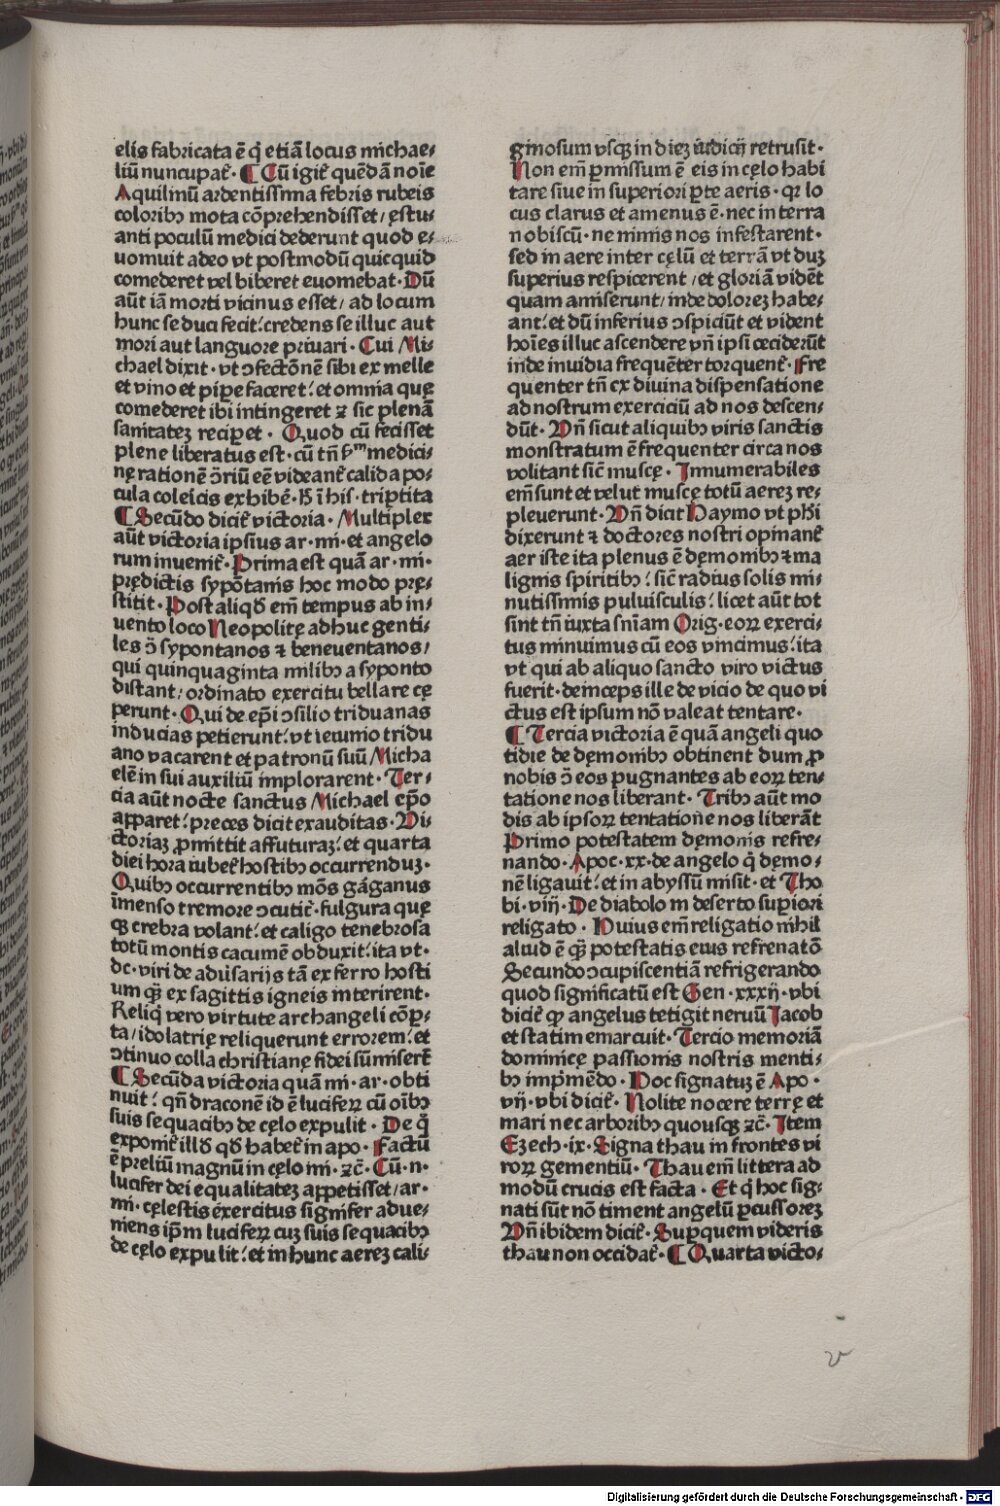 elis fabricata ē q̇ etiā locus michae⸗
liū nuncupat̄. ¶ Cū igit̄ quēdā noīe
Aquilinū ardentissima febris rubeis
coloribꝯ mota cōprehendisset/ ęstu⸗
anti poculū medici dederunt quod e⸗
uomuit adeo vt postmodū quicquid
comederet vel biberet euomebat. Dū
aūt iā morti vicinus esset/ ad locum
hunc se duci fecit: credens se illuc aut
mori aut languore priuari. Cui Mi⸗
chael dixit. vt ꝯfectōnē sibi ex melle
et vino et pipe faceret: et omnia quę
comederet ibi intingeret ⁊ sic plenā
sanitatez recip̄et. Quod cū fecisset
plene liberatus est. cū tn̄ fᵐ medici⸗
nę rationē ꝯ̄riū eē videant̄ calida po⸗
cula coleīcis exhibē. Ꝟ ī his. trip̄tita
¶ Secūdo dicit̄ victoria. Multiplex
aūt victoria ipsius ar. mi. et angelo
rum inuenit̄. Prima est quā ar. mi.
prędictis sypōtanis hoc modo prę⸗
stitit. Post aliqd̄ em̄ tempus ab in⸗
uento loco Neopolitę adhuc genti⸗
les ꝯ̄ sypontanos ⁊ beneuentanos/
qui quinquaginta milibꝯ a syponto
distant/ ordinato exercitu bellare cę
perunt. Qui de ep̄i ꝯsilio triduanas
inducias petierunt: vt ieiunio tridu
ano vacarent et patronū suū Micha
elē in sui auxiliū implorarent. Ter⸗
cia aūt nocte sanctus Michael ep̄o
apparet: preces dicit exauditas. Vi⸗
ctoriaz ꝓmittit affuturaz: et quarta
diei hora iubet̄ hostibꝯ occurrenduz.
Quibꝯ occurrentibꝯ mōs gāganus
īmenso tremore ꝯcutit̄. fulgura quę
qꝫ crebra volant: et caligo tenebrosa
totū montis cacumē obduxit: ita vt.
dc. viri de adūsarijs tā ex ferro hosti
um qꝫ̄ ex sagittis igneis interirent.
Reliq̇ vero virtute archangeli cōp⸗
ta/ idolatrię reliquerunt errorem: et
ꝯtinuo colla christianę fidei sūmisert̄
¶ Secūda victoria quā mi. ar. obti
nuit: qn̄ draconē id ē luciferꝝ cū oībꝯ
suis sequacibꝯ de cęlo expulit. De q̇
exponit̄ illd̄ qd̄ habet̄ in apo. Factū
ē preliū magnū in cęlo mi. ⁊c̄. Cū. n.
lucifer dei equalitatez appetisset/ ar.
mi. cęlestis exercitus signifer adue⸗
niens ip̄m luciferꝝ cuz suis sequacibꝯ
de cęlo expulit: et in hunc aerez cali⸗
ginosum vsqꝫ in diez iudicij retrusit.
Non em̄ ꝑmissum ē eis in cęlo habi
tare siue in superiori ꝑte aeris. qꝛ lo
cus clarus et amenus ē. nec in terra
nobiscū. ne nimis nos infestarent.
sed in aere inter cęlū et terrā vt duz
superius respicerent/ et gloriā vidēt
quam amiserunt/ inde dolorez habe⸗
ant: et dū inferius ꝯspiciūt et vident
hoīes illuc ascendere vn̄ ipsi ceciderūt
inde inuidia frequēter torquent̄. Fre
quenter tn̄ ex diuina dispensatione
ad nostrum exerciciū ad nos descen⸗
dūt. Vn̄ sicut aliquibꝯ viris sanctis
monstratum ē frequenter circa nos
volitant sic̄ muscę. Innumerabiles
em̄ sunt et velut muscę totū aerez re⸗
pleuerunt. Vn̄ dicit Haymo vt ph̄i
dixerunt ⁊ doctores nostri opinant̄
aer iste ita plenus ē dęmonibꝯ ⁊ ma
lignis spiritibꝯ: sic̄ radius solis mi⸗
nutissimis puluisculis: licet aūt tot
sint tn̄ iuxta sn̄iam Orig. eoꝝ exerci⸗
tus minuimus cū eos vincimus: ita
vt qui ab aliquo sancto viro victus
fuerit. deinceps ille de vicio de quo vi
ctus est ipsum nō valeat tentare.
¶ Tercia victoria ē quā angeli quo
tidie de dęmonibꝯ obtinent dum ꝓ
nobis ꝯ̄ eos pugnantes ab eoꝝ ten⸗
tatione nos liberant. Tribꝯ aūt mo
dis ab ipsoꝝ tentatione nos liberāt
Primo potestatem dęmonis refre⸗
nando. Apoc. xx. de angelo q̇ dęmo⸗
nē ligauit: et in abyssū misit. et Tho
bi. viij. De diabolo in deserto sup̄iori
religato. Huius em̄ religatio nihil
aliud ē qꝫ̄ potestatis eius refrenatō
Secundo ꝯcupiscentiā refrigerando
quod significatū est Gen. xxxij. vbi
dicit̄ ꝙ angelus tetigit neruū Jacob
et statim emarcuit. Tercio memoriā
dominicę passionis nostris menti⸗
bꝯ imp̄mēdo. Hoc signatuz ē Apo.
vij. vbi dicit̄. Nolite nocere terrę et
mari nec arboribꝯ quousqꝫ ⁊c̄. Item
Ezech. ix. Signa thau in frontes vi
roꝝ gementiū. Thau em̄ littera ad
modū crucis est facta. Et q̇ hoc sig⸗
nati sūt nō timent angelū ꝑcussorez
Vn̄ ibidem dicit̄. Sup̄ quem videris
thau non occidat̄. ¶ Quarta victo⸗
v
Digitalisierung gefördert durch die Deutsche Forschungsgemeinschaft - DFG